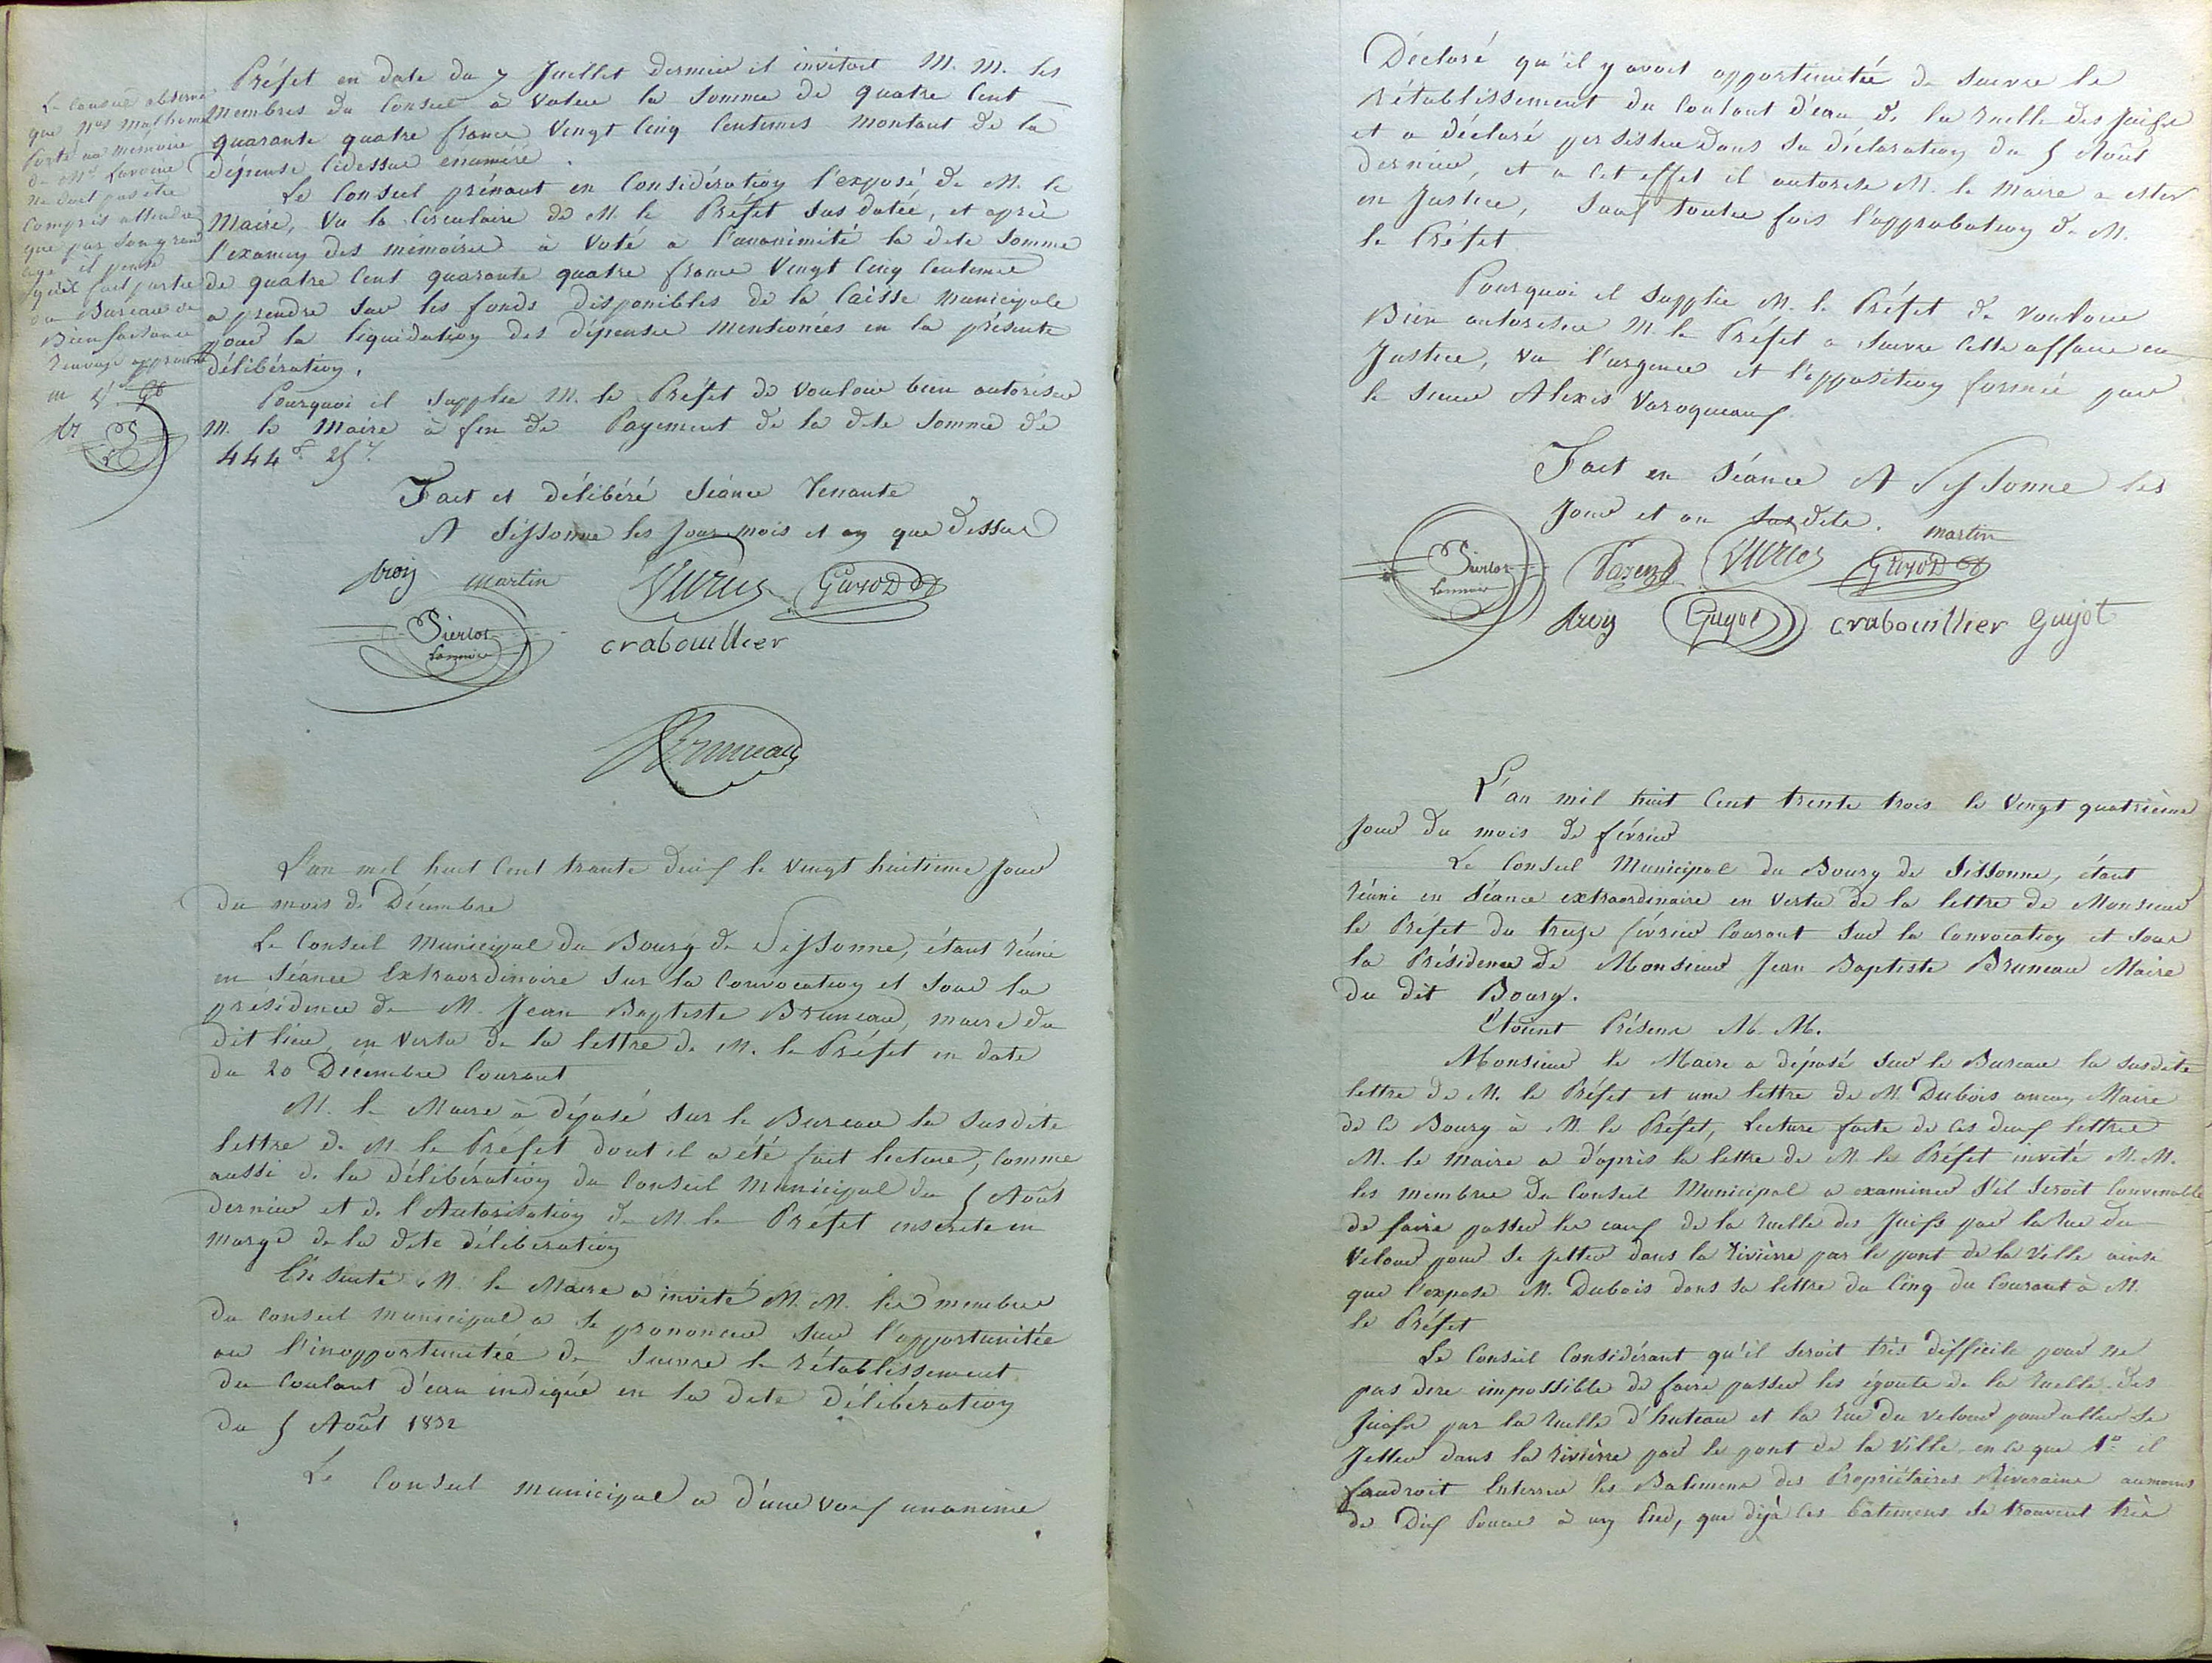 Préfet en date du 7 Juillet dernier il invitoit M. M. les
membres du Conseil à Voter la Somme de quatre Cent
quarante quatre francs Vingt Cinq Centimes montant de la
dépense cidessus enuméré.
Le Conseil prénant en Considération l'exposé de M. le
Maire, Vu la Circulaire de M. le Préfet sus datée, et après
l'examen des mémoires à Voté a l'unanimité la dete Somme
de quatre Cent quarante quatre francs Vingt Cinq Centimes
a prendre sur les fonds disponibles de la Caisse Municipale
pour la liquidation des dépenses mentionées en la présente
délibération.
Pourquoi il Supplie M. le Préfet de Vouloir bien autoriser
M. le Maire à fin de Payement de la dete Somme de
444 f. 25 c.
Le Conseil observe
que Mathieu
Porté au mémoire
de Mr. Lavoine
ne doit pas être
Compris attendu
que par son grand
age il pense
qu'il fait partie
du Bureau de
Bienfaisance
Renvoi approuvé
Fait et délibéré Séance Tenante
A Sissonne les Jour mois et an que Dessus
Froy martin Guyot
Pierlot
crabouillier
Bruneau
L'an mil huit Cent trante deux le Vingt huitième Jour
du mois de Décembre
Le Conseil Municipal du Bourg de Sissonne, étant réuni
en Séance Extraordinaire sur la Convocation et sous la
présidence de M. Jean Baptiste Bruneau, maire du
dit lieu, en Vertu de la lettre de M. le Préfet en date
du 20 Décembre Courant
M. le Maire à déposé sur le Bureau la susdite
lettre de M. le Préfet dont il a été fait lecture, Comme
aussi de la délibération du Conseil Municipal du 5 Août
dernier et de l'Autorisation de M. le Préfet inscrite en
marge de la dete délibération
En suite M. le Maire a invité M. M. les membres
du Conseil municipal a se prononcer sur l'opportunitée
ou l'inopportunitée de Suivre le rétablissement
du Coulant d'eau indiqué en la dete délibération
du 5 Août 1832
Le Conseil municipal a d'une voix unanime
Déclaré qu'il y avoit opportunitée de Suivre le
rétablissement du Coulant d'eau de la ruelle des Juifs
et a déclaré persister dans sa déclaration du 5 Août
dernier, et a Cet effet il autorise M. le Maire a ester
en Justice, sauf toutes fois l'approbation de M.
le Préfet
Pourquoi il Supplie M. le Préfet de Vouloir
Bien autoriser M. le Préfet a Suivre Cette affaire en
Justice, Vu l'urgence et l'opposition formée par
le sieur Alexis Varoqueaux.
Fait en Séance A Sissonne les
Jour et an Susdits. martin
Pierlot Guyot
Froy Guyot crabouillier Guyot
L'an mil huit Cent trente trois le Vingt quatrième
Jour du mois de février
Le Conseil Municipal du Bourg de Sissonne, étant
réuni en Séance extraordinaire en Vertu de la lettre de Monsieur
le Préfet du treize février Courant sur la Convocation et sous
la Présidence de Monsieur Jean Baptiste Bruneau Maire
du dit Bourg.
Etoient Présens M. M.
Monsieur le Maire a déposé sur le Bureau la susdite
lettre de M. le Préfet et une lettre de M. Dubois ancien Maire
de Ce Bourg à M. le Préfet, Lecture faite de Ces deux lettres
M. le Maire a d'après la lettre de M. le Préfet invité M. M.
les membres du Conseil Municipal a examiner s'il seroit Convenable
de faire passer les eaux de la ruelle des Juifs par la rue du
Velour pour se Jetter dans la rivièrre par le pont de la Ville ainsi
que l'expose M. Dubois dans sa lettre du Cinq du Courant à M.
le Préfet
Le Conseil Considérant qu'il seroit très difficile pour ne
pas dire impossible de faire passer les égouts de la ruelle des
Juifs par la ruelle d'huteau et la rue du Velour pour aller se
Jetter dans la rivièrre par le pont de la Ville en ce que 1° il
faudroit Enterrer les Batimens des Propriétaires Riverains aumoins
de Dix Pouces à un Pied, que déjà Ces bâtimens se trouvent très